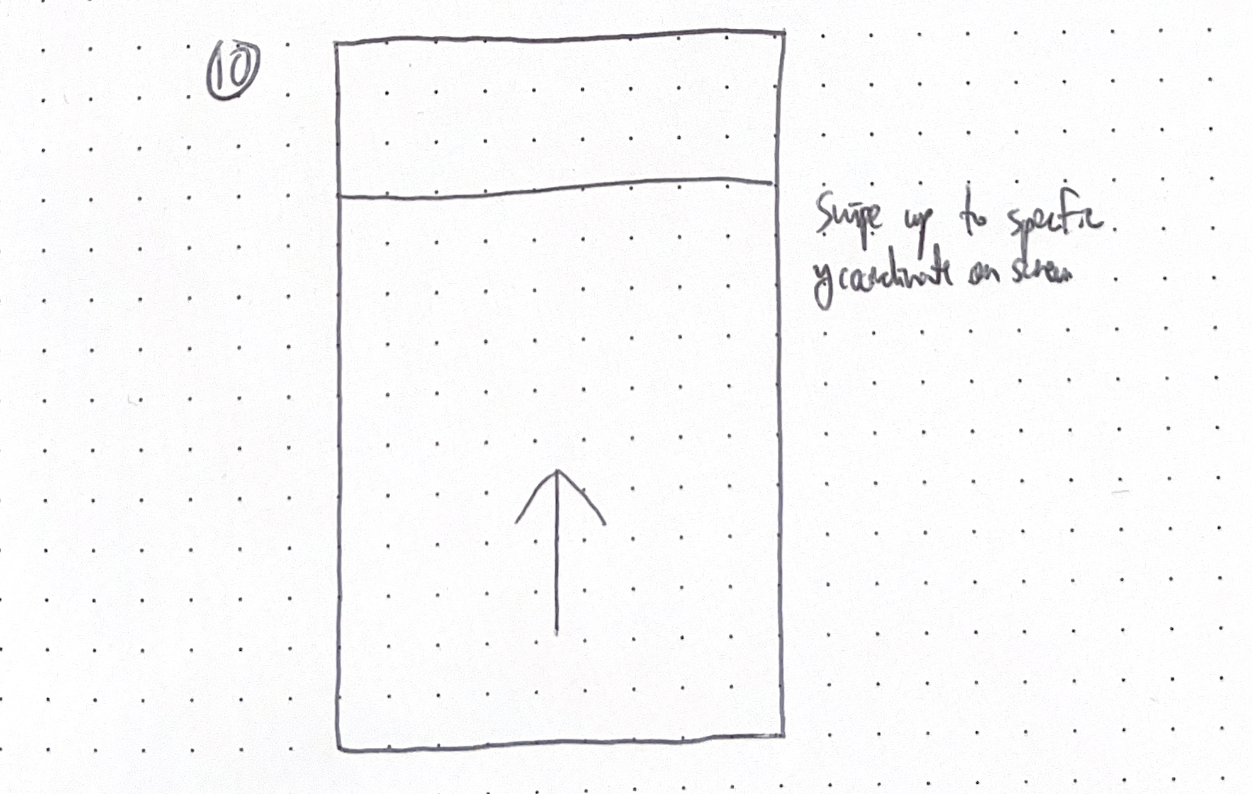 10
Swipe up to specific
y coordinate on screen